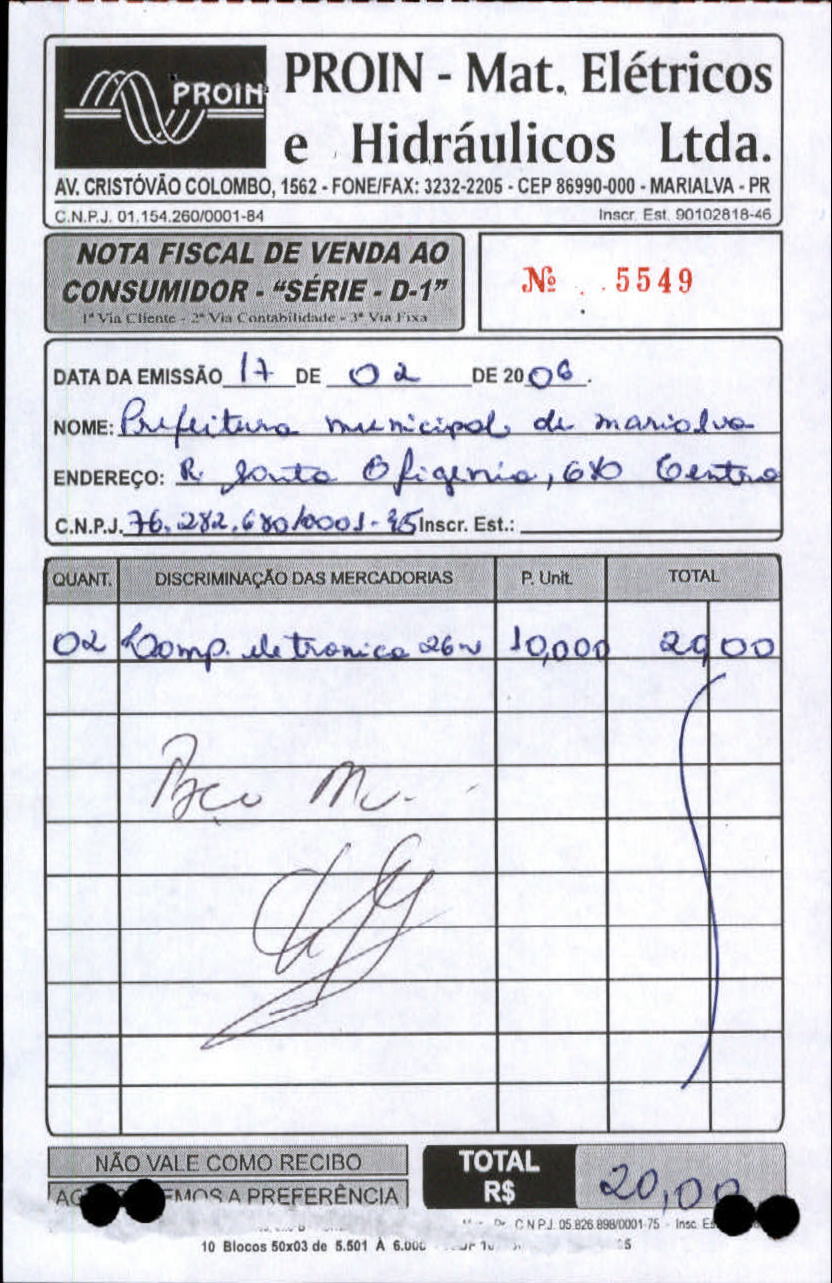 PROIN
PROIN - Mat. Elétricos
e Hidráulicos Ltda.
AV. CRISTÓVÃO COLOMBO, 1562 - FONE/FAX: 3232-2205 - CEP 86990-000 - MARIALVA - PR
C.N.P.J. 01.154.260/0001-84 Inscr. Est. 90102818-46
NOTA FISCAL DE VENDA AO
CONSUMIDOR - "SÉRIE - D-1"
1ª Via Cliente - 2ª Via Contabilidade - 3ª Via Fixa
Nº 5549
DATA DA EMISSÃO 17 DE 02 DE 2006.
NOME: Prefeitura municipal de marialva
ENDEREÇO: R. Santa Efigenia, 680 Centro
C.N.P.J. 76.282.680/0001-45 Inscr. Est.:
QUANT. DISCRIMINAÇÃO DAS MERCADORIAS P. Unit. TOTAL
02 Comp. eletronica 26w 10,000 20 00
Paço M.
NÃO VALE COMO RECIBO
EMOS A PREFERÊNCIA
TOTAL
R$ 20,00
C.N.P.J. 05.826.898/0001-75 - Insc. Es
10 Blocos 50x03 de 5.501 À 6.000